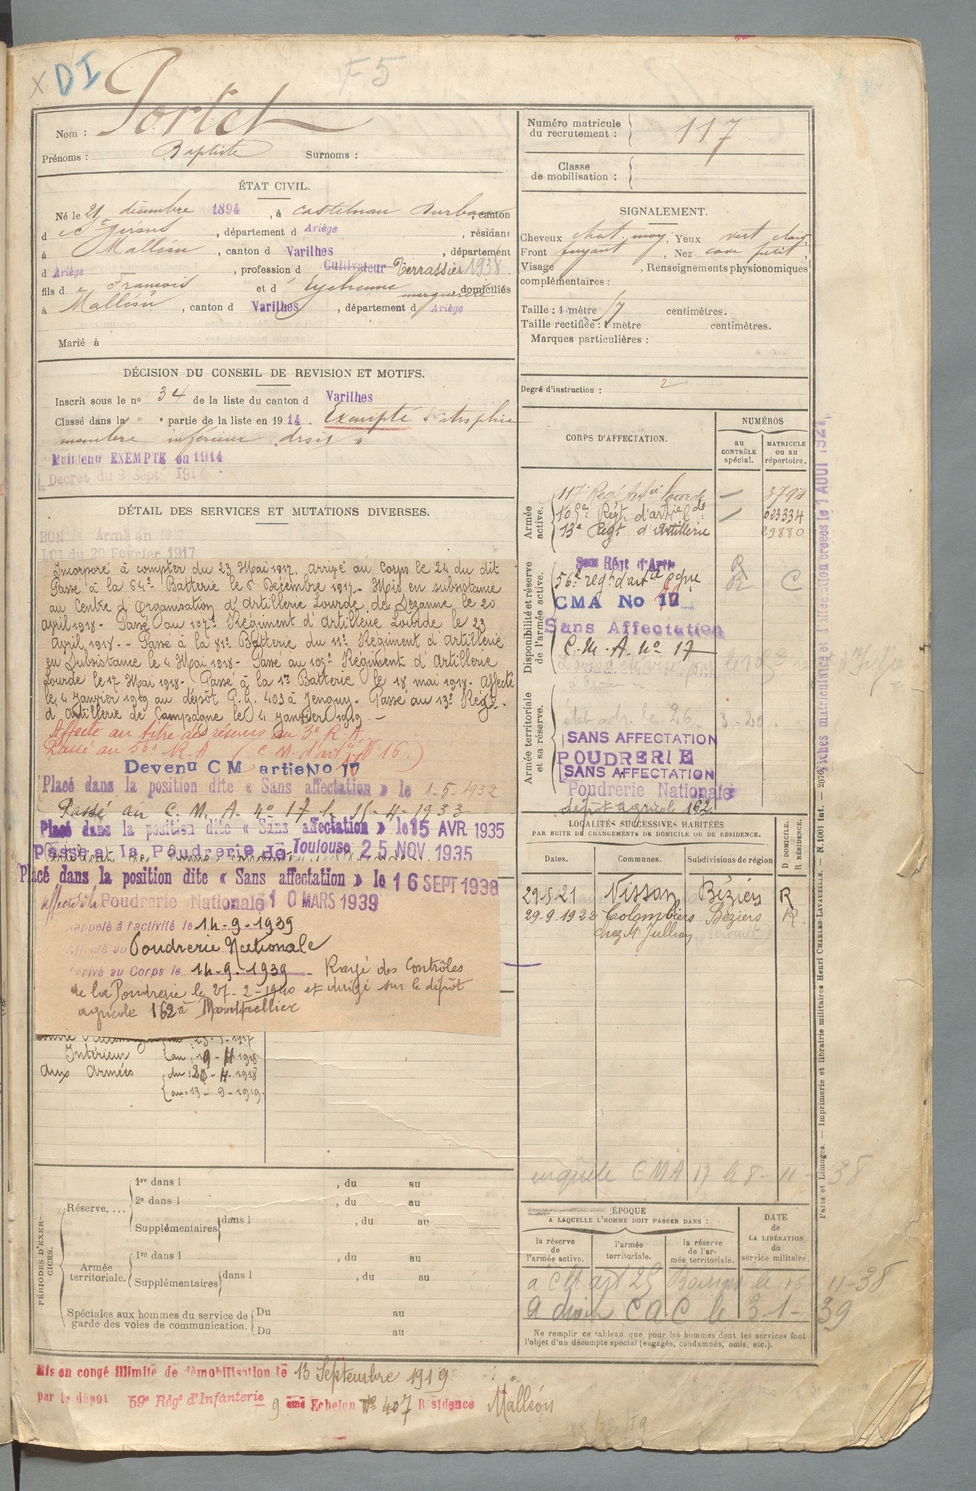 x DI
F 5
Nom : Portet
Prénoms : Baptiste Surnoms :
ÉTAT CIVIL.
Né le 21 décembre 1894, à Castelnau Durban, canton
d St Girons, département d Ariège, résidant
à Malléon, canton d Varilhes, département
d Ariège, profession d Cultivateur Terrassier 1938.
fils d François et d' marguerite domiciliés
à Malléon, canton d Varilhes, département d Ariège
Marié à
DÉCISION DU CONSEIL DE REVISION ET MOTIFS.
Inscrit sous le no 34 de la liste du canton d Varilhes
Classé dans la partie de la liste en 1914. Exempté atrophie
membre inférieur droit
Maintenu EXEMPTE en 1914
Decret du 9 Sept 1914
DÉTAIL DES SERVICES ET MUTATIONS DIVERSES.
BON Sce Armé en 1917
LOI du 20 Février 1917
Incorporé à compter du 23 Mai 1917. Arrivé au Corps le 24 du dit
Passé à la 64e Batterie le 6 Décembre 1917 - Mis en subsistance
au Centre d'Organisation d'Artillerie Lourde de Sézanne le 20
april 1918 - Passé au 107e Régiment d'Artillerie Lourde le 23
April 1918 - Passé à la 81e Batterie du 11e Régiment d'Artillerie
en Subsistance le 4 Mai 1918 - Passé au 109e Régiment d'Artillerie
Lourde le 17 Mai 1918 - Passé à la 1re Batterie le 18 mai 1918 - Affecté
le 4 Janvier 1919 au dépôt P.G. 403 à Passé au 13e Régt
d'Artillerie de Campagne le 4 janvier 1919. -
Affecté au titre des réserves au 3e R.A.
Passé au 56e R.A (C.M. d'artie N° 16.)
Devenu C M artie No 17
Placé dans la position dite « Sans affectation » le 1-5-1932
Passé au C. M. A. no 17 le 15-4-1933
Placé dans la position dite « Sans affectation » le 15 AVR 1935
Passé à la Poudrerie de Toulouse 25 NOV 1935
Placé dans la position dite « Sans affectation » le 16 SEPT 1938
affecté à la Poudrerie Nationale 10 MARS 1939
Rappelé à l'activité le 14-9-1939
Affecté au Poudrerie Nationale
Arrivé au Corps le 14-9-1939 - Rayé des Contrôles
de la Poudrerie le 27-2-1940 et dirigé sur le dépôt
agricole 162 à Montpellier
Intérieur au 19-4-1918
aux Armées du 20-4-1918
au 13-9-1919
PÉRIODES D'EXERCICES.
Réserve....
1re dans l , du au
2e dans l , du au
Supplémentaires dans l , du au
Armée territoriale.
1re dans l , du au
Supplémentaires dans l , du au
Spéciales aux hommes du service de garde des voies de communication.
Du au
Du au
Mis en congé illimité de démobilisation le 13 Septembre 1919
par le dépôt 59e Régt d'Infanterie 9 eme Echelon No 407 Résidence Malléon
Numéro matricule du recrutement : 117
Classe de mobilisation :
SIGNALEMENT.
Cheveux chat. moy, Yeux vert clair
Front fuyant, Nez cave petit
Visage , Renseignements physionomiques
complémentaires :
Taille : 1 mètre 57 centimètres.
Taille rectifiée : 1 mètre centimètres.
Marques particulières :
Degré d'instruction : 2
CORPS D'AFFECTATION.
NUMÉROS
au CONTRÔLE spécial.
MATRICULE ou au répertoire.
Armée active.
117e Regt Artie lourde 3797
109e Regt. d'artie lde 033334
13e Regt d'Artillerie 29880
Disponibilité et réserve de l'armée active.
3me Régt d'Artie R
56e regt d'artie R C
CMA No 17
Sans Affectation
C.M.A. no 17
Armée territoriale et sa réserve.
SANS AFFECTATION
POUDRERIE
SANS AFFECTATION
Poudrerie Nationale
dépôt agricole 162
LOCALITÉS SUCCESSIVES HABITÉES
PAR SUITE DE CHANGEMENTS DE DOMICILE OU DE RÉSIDENCE.
Dates. Communes. Subdivisions de région D DOMICILE. R RÉSIDENCE.
29-8-21 Nissan Béziers R
29-9-1922 Colombiers Béziers R.
chez Mr Jullian
enquête CMA 17 le 8-11-38
ÉPOQUE
A LAQUELLE L'HOMME DOIT PASSER DANS :
la réserve de l'armée active.
l'armée territoriale.
la réserve de l'armée territoriale.
DATE de LA LIBÉRATION du service militaire.
11-38
CAC le 3-1-39
Ne remplir ce tableau que pour les hommes dont les services font
l'objet d'un décompte spécial (engagés, condamnés, omis, etc.).
Fiches matriculaires et d'affectation créées le 1 AOUT 1921
Paris et Limoges. — Imprimerie et librairie militaires Henri CHARLES-LAVAUZELLE. — N. 1001 Int.